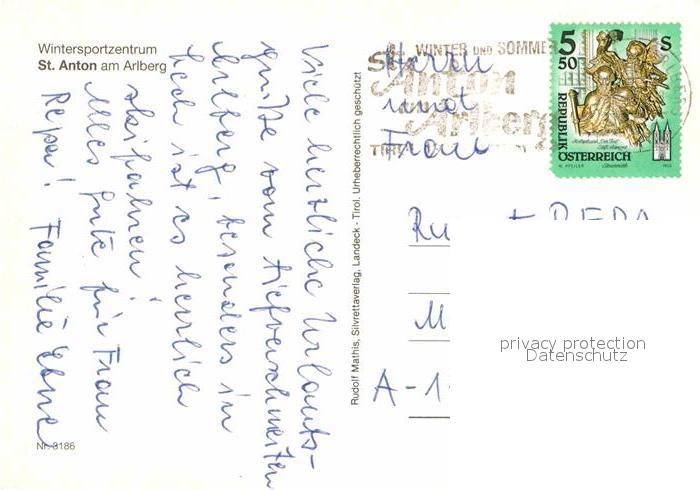 Wintersportzentrum
St. Anton am Arlberg
Viele herzliche Urlaubs-
grüße vom tiefverschneiten
Arlberg, besonders in
Lech ist es herrlich
skifahren!
Alles gute für Frau
Repa! Familie
Nr. 3186
Rudolf Mathis, Silvrettaverlag, Landeck - Tirol. Urheberrechtlich geschützt
WINTER UND SOMMER
St.
Anton
Arlberg
TIROL
5
50
S
REPUBLIK
ÖSTERREICH
Herrn
und
Frau
Ru
REPA
M
A-1
privacy protection
Datenschutz